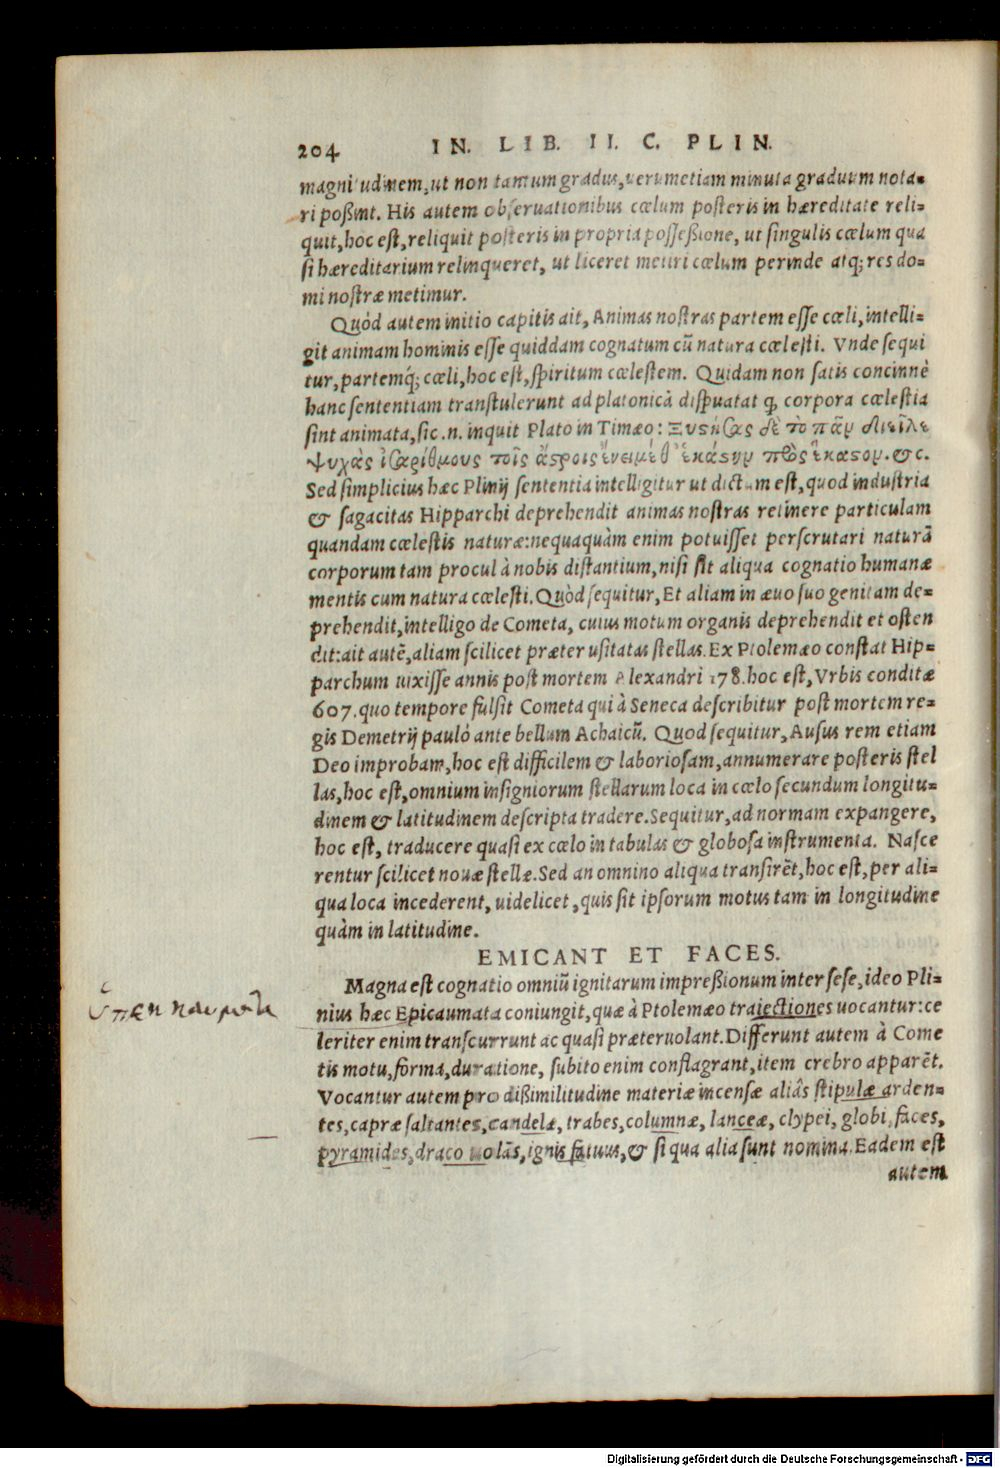 204 IN. LIB. II. C. PLIN.
magnitudinem, ut non tantum gradus, uerumetiam minuta graduum nota-
ri poßint. His autem obseruationibus cœlum posteris in hæreditate reli-
quit, hoc est, reliquit posteris in propria possessione, ut singulis cœlum qua
si hæreditarium relinqueret, ut liceret metiri cœlum perinde atq; res do-
mi nostræ metimur.
Quòd autem initio capitis ait, Animas nostras partem esse cœli, intelli-
git animam hominis esse quiddam cognatum cũ natura cœlesti. Vnde sequi
tur, partemq́; cœli, hoc est, spiritum cœlestem. Quidam non satis concinnè
hanc sententiam transtulerunt ad platonicã disputat ꝙ corpora cœlestia
sint animata, sic .n. inquit Plato in Timæo: Ξυςήσας δὲ τὸ πᾶν διεῖλε
ψυχὰς ἰσαρίθμους τοῖς ἄςροις ἔνειμέ θ᾽ ἑκάςην πρὸς ἕκαςον. &c.
Sed simplicius hæc Plinij sententia intelligitur ut dictum est, quod industria
& sagacitas Hipparchi deprehendit animas nostras retinere particulam
quandam cœlestis naturæ: nequaquàm enim potuisset perscrutari naturã
corporum tam procul à nobis distantium, nisi sit aliqua cognatio humanæ
mentis cum natura cœlesti. Quòd sequitur, Et aliam in æuo suo genitam de-
prehendit, intelligo de Cometa, cuius motum organis deprehendit et osten
dit: ait autẽ, aliam scilicet præter usitatas stellas. Ex Ptolemæo constat Hip-
parchum uixisse annis post mortem Alexandri 178. hoc est, Vrbis conditæ
607. quo tempore fulsit Cometa qui à Seneca describitur post mortem re-
gis Demetrij pauló ante bellum Achaicũ. Quod sequitur, Ausus rem etiam
Deo improbam, hoc est difficilem & laboriosam, annumerare posteris stel
las, hoc est, omnium insigniorum stellarum loca in cœlo secundum longitu-
dinem & latitudinem descripta tradere. Sequitur, ad normam expangere,
hoc est, traducere quasi ex cœlo in tabulas & globosa instrumenta. Nasce
rentur scilicet nouæ stellæ. Sed an omnino aliqua transirẽt, hoc est, per ali-
qua loca incederent, uidelicet, quis sit ipsorum motus tam in longitudine
quàm in latitudine.
EMICANT ET FACES.
Magna est cognatio omniũ ignitarum impreßionum inter sese, ideo Pli-
nius hæc Epicaumata coniungit, quæ à Ptolemæo traiectiones uocantur: ce
leriter enim transcurrunt ac quasi præteruolant. Differunt autem à Come
tis motu, forma, duratione, subito enim conflagrant, item crebro apparẽt.
Vocantur autem pro dißimilitudine materiæ incensæ aliâs stipulæ arden-
tes, capræ saltantes, candelæ, trabes, columnæ, lanceæ, clypei, globi, faces,
pyramides, draco uolãs, ignis fatuus, & si qua alia sunt nomina. Eadem est
autem
Digitalisierung gefördert durch die Deutsche Forschungsgemeinschaft - DFG